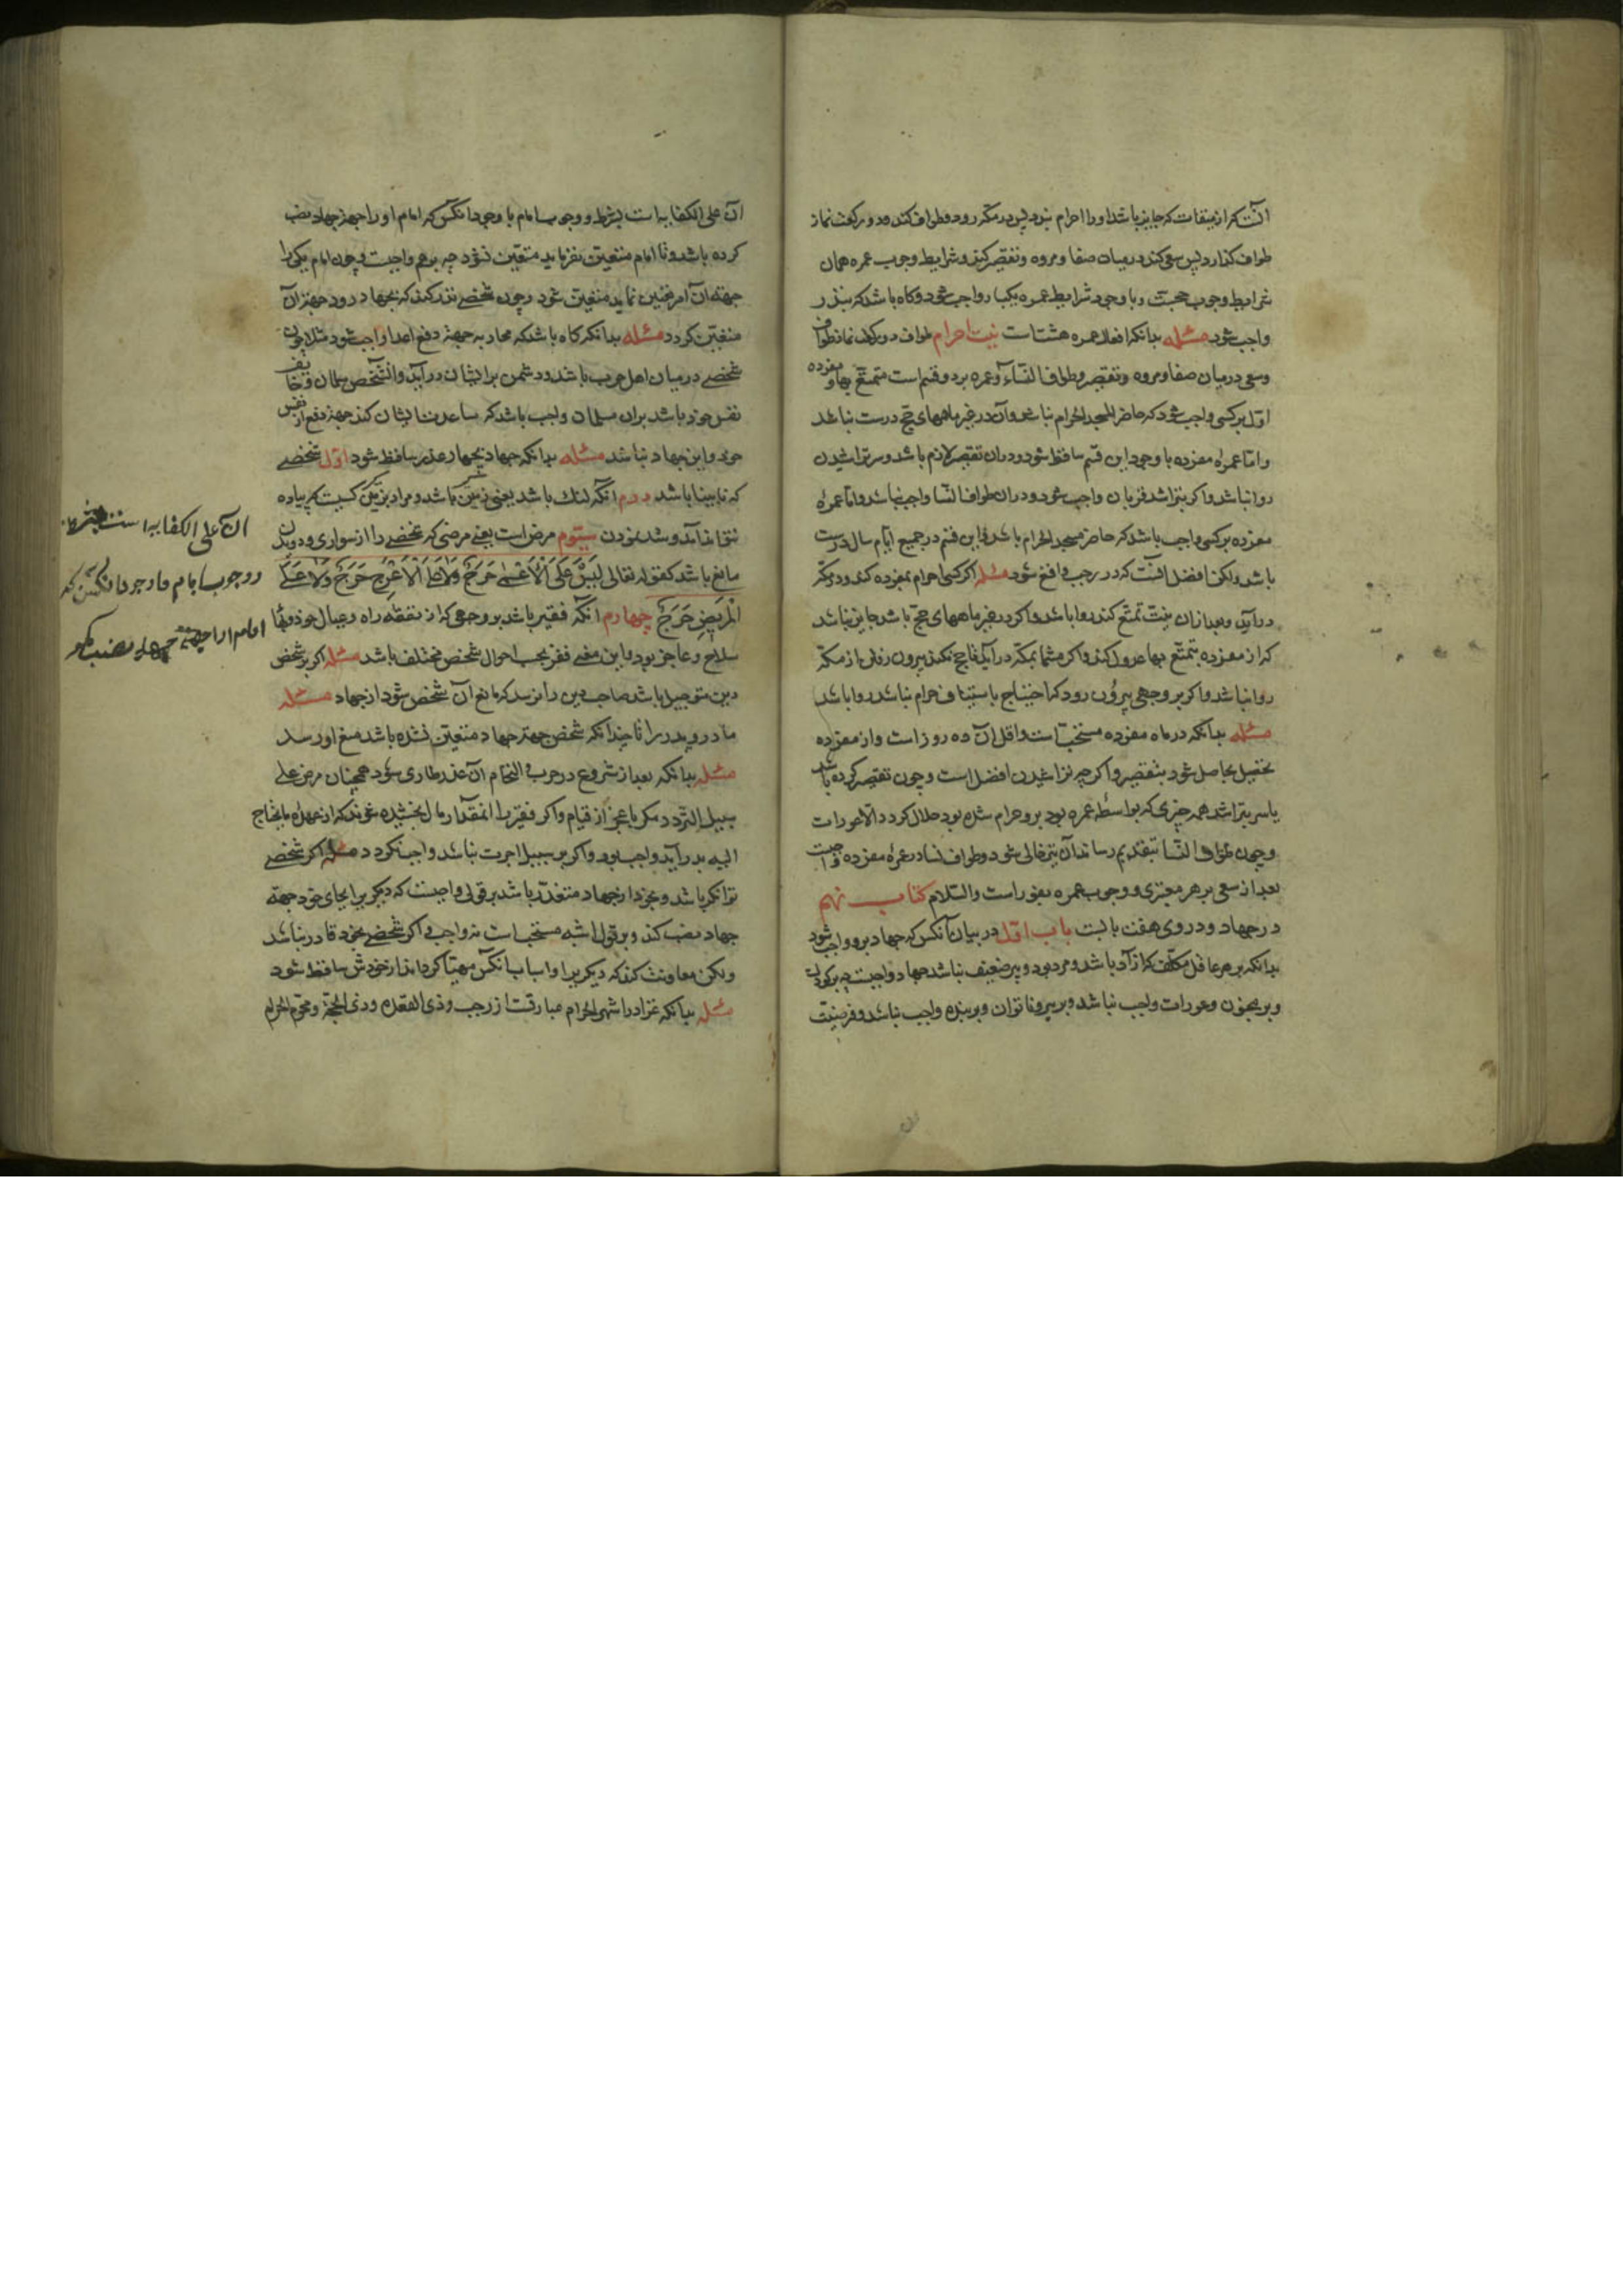 آنست که از میقات که جایز باشد او را احرام بندد پس در مکه رود و طواف کند و دو رکعت نماز
طواف کذارد پس سعی کند در میان صفا و مروه و تقصیر کند و شرایط وجوب عمره همان
شرایط وجوب حجست و با وجود شرایط عمره یکبار واجب شود و کاه باشد که بنذر
واجب شود مسئله بدانکه افعال عمره هشت است نیت احرام طواف دو رکعت نماز طواف
و سعی در میان صفا و مروه و تقصیر و طواف النساء و عمره بر دو قسم است متمتع بها و مفرده
اول بر کسی واجب شود که حاضر المسجد الحرام نباشد و آن در غیر ماههای حج درست نباشد
و اما عمرهٔ مفرده با وجود این قسم ساقط شود و در آن تقصیر لازم باشد و سر تراشیدن
روا نباشد و اکر بتراشد قربان واجب شود و در آن طواف النسا واجب نباشد و اما عمرهٔ
مفرده بر کسی واجب باشد که حاضر مسجد الحرام باشد و این قسم در جمیع ایام سال درست
باشد ولکن افضل آنست که در رجب واقع شود مسئله اکر کسی احرام بمفرده کند و در مکه
درآید و بعد از آن نیت تمتع کند روا باشد و اکر در غیر ماههای حج باشد جایز نباشد
که از مفرده بتمتع بها عدول کند و اکر متمتعا بمکه درآید تا حج نکند بیرون رفتن از مکه
روا نباشد و اکر بر وجهی بیرون رود که احتیاج باستیناف احرام نباشد روا باشد
مسئله بدانکه در ماه مفرده مستحبست و اقل آن ده روز است و از مفرده
تحلیل حاصل شود بتقصیر و اکر چه تراشیدن افضل است و چون تقصیر کرده باشد
یا سر بتراشد همه چیزی که بواسطهٔ عمره بود برو حرام شده بود حلال کردد الا عورات
و چون طواف النسا بتقدیم رساند آن نیز حلال شود و طواف نسا در عمرهٔ مفرده واجبست
بعد از سعی بر هر معتمری و وجوب عمره بفور است والسلام کتاب نهم
در جهاد و در وی هفت بابست باب اول در بیان آنکس که جهاد برو واجب شود
بدانکه بر هر عاقل مکلف که آزاد باشد و مرد بود و پیر ضعیف نباشد جهاد واجبست چه بر کودک
و بر مجنون و عورات واجب نباشد و بر پیر و ناتوان و بر بنده واجب نباشد و فرضیت
آن علی الکفایه است بشرط وجوب امام با وجود آنکس که امام او را جهة جهاد نصب
کرده باشد و تا امام متعین نفرماید متعین نشود چه بر همه واجبست و چون امام یکی را
جهة آن امر تعیین نماید متعین شود و چون شخصی نذر کند که بجهاد رود جهة آن
متعین کردد مسئله بدانکه کاه باشد که محاربه جهة دفع اعدا واجب شود مثلا چون
شخصی در میان اهل حرب باشد و دشمن بر ایشان درآید و آن شخص مسلمان و خایف
نفس خود باشد بر آن مسلمان واجب باشد که مساعدت ایشان کند جهة دفع از نفس
خود و این جهاد نباشد مسئله بدانکه جهاد بچهار عذر ساقط شود اول شخصی
که نابینا باشد دوم آنکه لنک باشد یعنی زمین باشد و مراد بزمین کسیست که پیاده
نتواند آمد و شد نمودن سیوم مرض است یعنی مرضی که شخصی را از سواری و دویدن
مانع باشد کقوله تعالی لَیْسَ عَلَی الْأَعْمٰی حَرَجٌ وَلَا عَلَی الْأَعْرَجِ حَرَجٌ وَلَا عَلَی
الْمَرِیضِ حَرَجٌ چهارم آنکه فقیر باشد بر وجهی که از نفقهٔ راه و عیال خود و بهای
سلاح عاجز بود و این معنی فقر بحسب احوال شخص مختلف باشد مسئله اکر بر شخص
دین مؤجل باشد صاحب دین را نرسد که مانع آن شخص شود از جهاد مسئله
مادر و پدر را تا چندانکه شخص جهة جهاد متعین نشده باشد منع او رسد
مسئله بدانکه بعد از شروع در حرب و التحام آن عذر طاری شود همچنان مرض علی
سبیل التردد مکر با عجز از قیام و اکر فقیر را آنمقدار مال بخشیده شوند که از عهدهٔ مایحتاج
الیه بدر آید واجب بود و اکر بر سبیل اجرت باشد واجب نکردد مسئله اکر شخصی
توانکر باشد و بخود از جهاد متعذر باشد بر قولی واجبست که دیکری را بجای خود جهة
جهاد نصب کند و بر قول اشبه مستحب است نه واجب و اکر شخصی بخود قادر باشد
ولکن معاونت کند که دیکری را و اسباب آنکس مهیا کرداند از خودش ساقط شود
مسئله بدانکه غزا در اشهر الحرام عبارتست از رجب و ذی القعده و ذی الحجة و محرم الحرام
آن علی الکفایه است بشرط
وجوب امام با وجود آنکس که
امام او را جهة جهاد نصب کرده